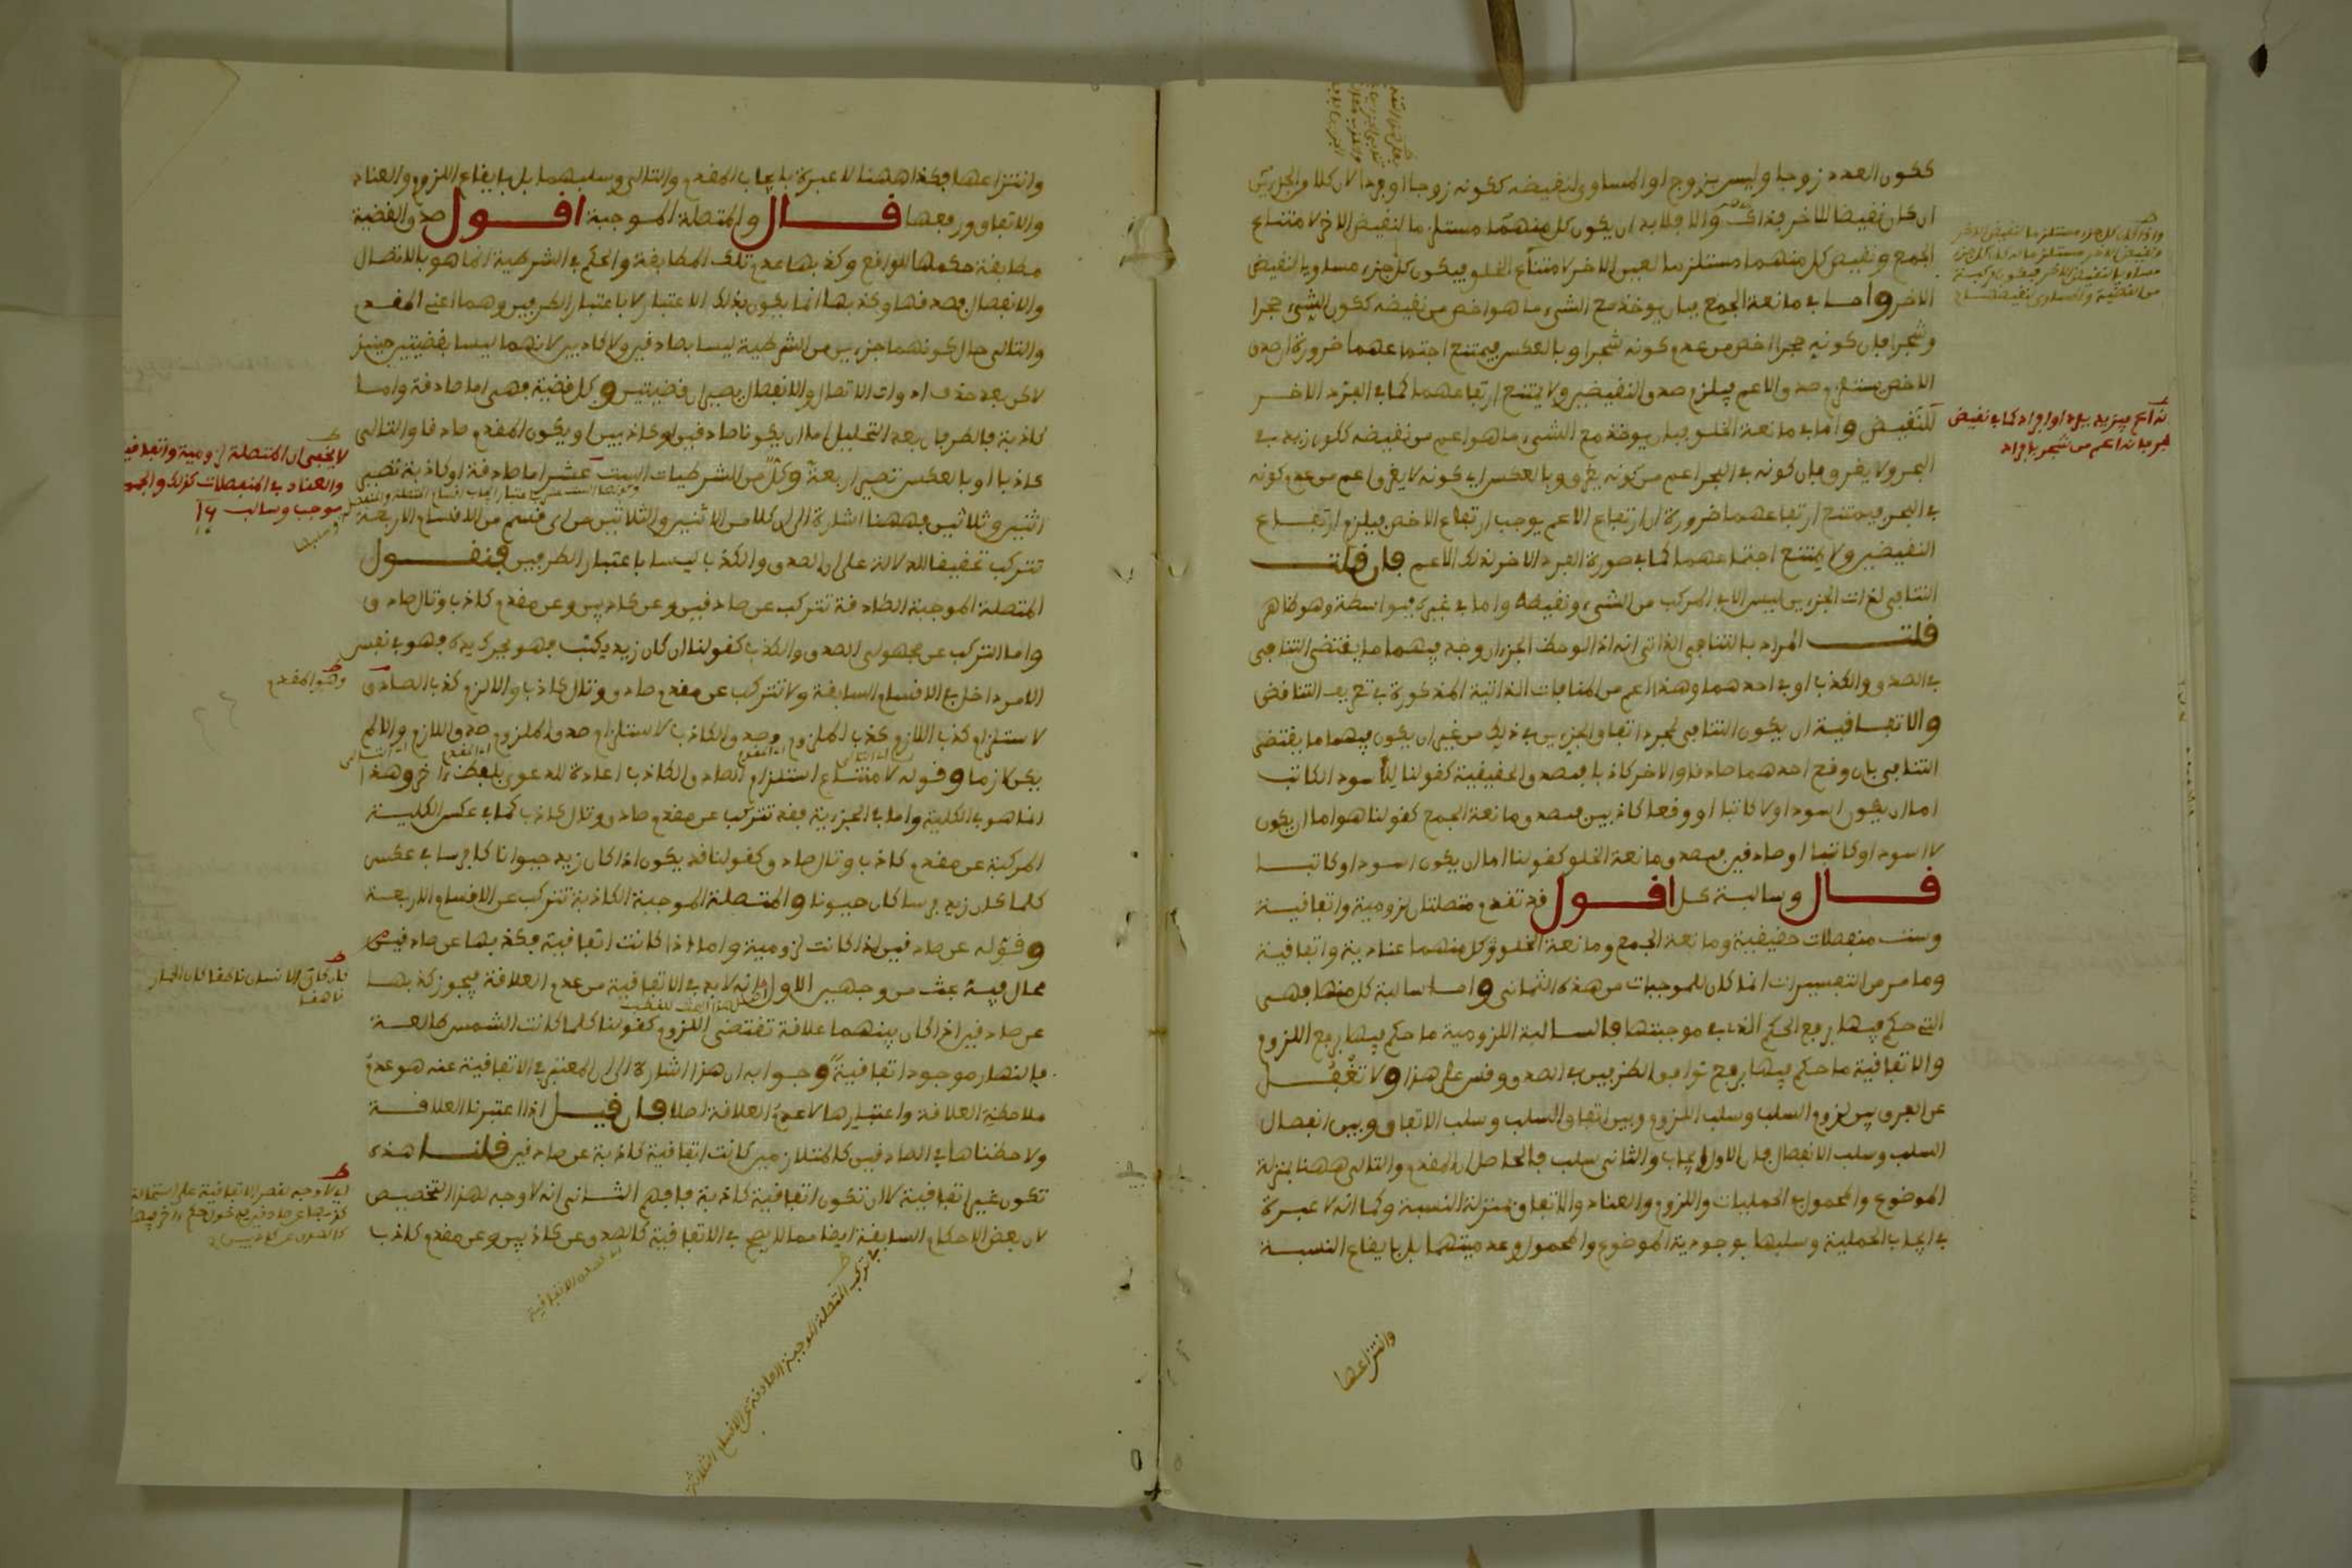 ككون العدد زوجا وليس بزوج او المساوى لنقيضه ككونه زوجا او فردا لان كلا من الجزءين
ان كان نقيضا للاخر فذاك والا فلا بد ان يكون كل منهما مستلزما لنقيض الاخر لامتناع
الجمع ونقيض كل منهما مستلزما لعين الاخر لامتناع الخلو فيكون كل جزء مساويا لنقيض
الاخر واما في مانعة الجمع فبان يوخذ مع الشيء ما هو اخص من نقيضه ككون الشيء حجرا
وشجرا فان كونه حجرا اخص من عدم كونه شجرا وبالعكس فيمتنع اجتماعهما ضرورة ان صدق
الاخص يستلزم صدق الاعم فيلزم صدق النقيضين ولا يمتنع ارتفاعهما كما في الفرد الاخر
للنقيض واما في مانعة الخلو فبان يوخذ مع الشيء ما هو اعم من نقيضه ككون زيد في
البحر ولا يغرق فان كونه في البحر اعم من كونه يغرق وبالعكس اي كونه لا يغرق اعم من عدم كونه
في البحر فيمتنع ارتفاعهما ضرورة ان ارتفاع الاعم يوجب ارتفاع الاخص فيلزم ارتفاع
النقيضين ولا يمتنع اجتماعهما كما في صورة الفرد الاخر لذلك الاعم فان قلت
التنافي لذات الجزءين ليس الا في المركب من الشيء ونقيضه واما في غيره فبواسطة وهو ظاهر
قلت المراد بالتنافي الذاتي انه اذا لوحظ الجزءان وجد فيهما ما يقتضي التنافي
في الصدق والكذب او في احدهما وهذا اعم من المنافات الذاتية المذكورة في تعريف التناقض
والاتفاقية ان يكون التنافي لمجرد اتفاق الجزءين في ذلك من غير ان يكون فيهما ما يقتضي
التنافي بان وقع احدهما صادقا والاخر كاذبا فيصدق الحقيقية كقولنا للاسود الكاتب
اما ان يكون اسود او لا كاتبا او وقعا كاذبين فيصدق مانعة الجمع كقولنا هو اما ان يكون
لا اسود او كاتبا او صادقين فيصدق مانعة الخلو كقولنا اما ان يكون اسود او كاتبا
قال وسالبة كل اقول قد تقدم متصلتان لزومية واتفاقية
وست منفصلات حقيقية ومانعة الجمع ومانعة الخلو وكل منهما عنادية واتفاقية
وما مر من التفسيرات انما كان للموجبات من هذه الثماني واما سالبة كل منها فهي
التي حكم فيها برفع الحكم الذي في موجبتها فالسالبة اللزومية ما حكم فيها برفع اللزوم
والاتفاقية ما حكم فيها برفع توافق الطرفين في الصدق وقس على هذا ولا تغفل
عن الفرق بين لزوم السلب وسلب اللزوم وبين اتفاق السلب وسلب الاتفاق وبين انفصال
السلب وسلب الانفصال فان الاول ايجاب والثاني سلب فالحاصل ان المقدم والتالي ههنا بمنزلة
الموضوع والمحمول في الحمليات واللزوم والعناد والاتفاق بمنزلة النسبة وكما انه لا عبرة
في ايجاب الحملية وسلبها بوجودية الموضوع والمحمول وعدميتهما بل بايقاع النسبة
وانتزاعها
نه اعم
وانتزاعها فكذا ههنا لا عبرة بايجاب المقدم والتالي وسلبهما بل بايقاع اللزوم والعناد
والاتفاق ورفعها قال والمتصلة الموجبة اقول صدق القضية
مطابقة حكمها للواقع وكذبها عدم تلك المطابقة والحكم في الشرطية انما هو بالاتصال
والانفصال فصدقها وكذبها انما يكون بذلك الاعتبار لا باعتبار الطرفين وهما اعني المقدم
والتالي حال كونهما جزءين من الشرطية ليسا بصادقين ولا كاذبين لانهما ليسا بقضيتين حينئذ
لاكن بعد حذف ادوات الاتصال والانفصال يصيران قضيتين وكل قضية فهي اما صادقة واما
كاذبة فالطرفان بعد التحليل اما ان يكونا صادقين او كاذبين او يكون المقدم صادقا والتالي
كاذبا او بالعكس تصير اربعة وكل من الشرطيات الست عشر اما صادقة او كاذبة تصير
اثنين وثلاثين فههنا اشارة الى ان كلا من الاثنين والثلاثين من اى قسم من الاقسام الاربعة
تتركب تحقيقا للدلالة على ان الصدق والكذب ليسا باعتبار الطرفين فنقول
المتصلة الموجبة الصادقة تتركب عن صادقين وعن كاذبين وعن مقدم كاذب وتال صادق
واما التركب عن مجهولي الصدق والكذب كقولنا ان كان زيد يكتب فهو يحرك يده فهو في نفس
الامر داخل في الاقسام السابقة ولا تتركب عن مقدم صادق وتال كاذب والا لزم كذب الصادق
لاستلزام كذب اللازم كذب الملزوم وصدق الكاذب لاستلزام صدق الملزوم صدق اللازم والا لم
يكن لازما وقوله لامتناع استلزام الصادق الكاذب اعادة للدعوى بلفظ اخر وهذا
انما هو في الكلية واما في الجزئية فقد تتركب عن مقدم صادق وتال كاذب كما في عكس الكلية
المركبة عن مقدم كاذب وتال صادق كقولنا قد يكون اذا كان زيد حيوانا كان فرسا في عكس
كلما كان زيد فرسا كان حيوانا والمتصلة الموجبة الكاذبة تتركب عن الاقسام الاربعة
وقوله عن صادقين اذا كانت لزومية واما اذا كانت اتفاقية فكذبها عن صادقين
محال فيه بحث من وجهين الاول انه لا بد في الاتفاقية من عدم العلاقة فيجوز كذبها
عن صادقين اذا كان بينهما علاقة تقتضي اللزوم كقولنا كلما كانت الشمس طالعة
فالنهار موجود اتفاقية وجوابه ان هذا اشارة الى ان المعتبر في الاتفاقية عنه هو عدم
ملاحظة العلاقة واعتبارها لا عدم العلاقة اصلا فان قيل اذا اعتبرنا العلاقة
ولاحظناها في الصادقين كالمتلازمين كانت اتفاقية كاذبة عن صادقين قلنا هذه
تكون غير اتفاقية لا ان تكون اتفاقية كاذبة فافهم الثاني انه لا وجه لهذا التخصيص
لان بعض الاحكام السابقة ايضا مما لا يصح في الاتفاقية كالصدق عن كاذبين وعن مقدم كاذب
لا يخفى ان المتصلة لزومية واتفاقية
والعناد في المنفصلات كذلك والجميع
موجب وسالب ١٦
وهو المقدم
فان كان الانسان ناطقا كان الحمار
ناهقا
فا تركب المتصلة الموجبة الصادقة عن الاقسام الثلاثة